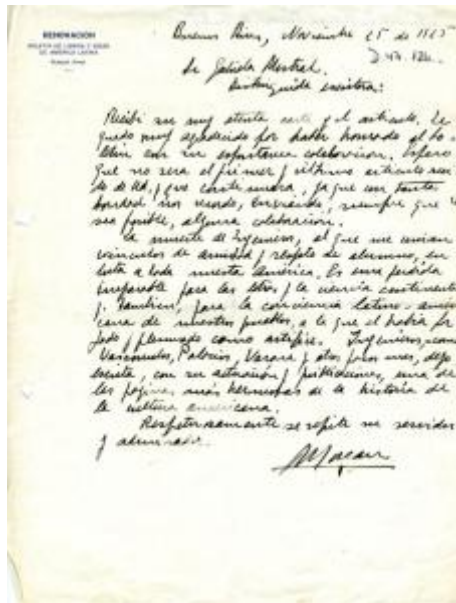 RENOVACION
BOLETIN DE LIBROS E IDEAS
DE AMERICA LATINA
Buenos Aires
Buenos Aires, Noviembre 25 de 1925
Sr. Gabriela Mistral.
Distinguida escritora:
Recibí su muy atenta carta y el artículo. Le
quedo muy agradecido por haber honrado al bo-
letin con su espontánea colaboracion. Espero
que no será el primer y último artículo
de Ud. y que continuará, ya que con tanta
bondad nos recordó, enviando, siempre que le
sea posible, alguna colaboracion.
La muerte de Ingenieros, al que me unian
vinculos de amistad y respeto de alumno, en
luta a toda nuestra América. Es una perdida
irreparable para las letras y la ciencia continental
y tambien, para la conciencia latino-ameri
cana de nuestros pueblos, a la que el habia for
jado y plasmado como artifice. Ingenieros, como
Vasconcelos, Palacios, Varona y otros pocos mas, deja
escrita, con su actuación y publicaciones, una de
las páginas más hermosas de la historia de
la cultura americana.
Respetuosamente se repite su servidor
y admirador.